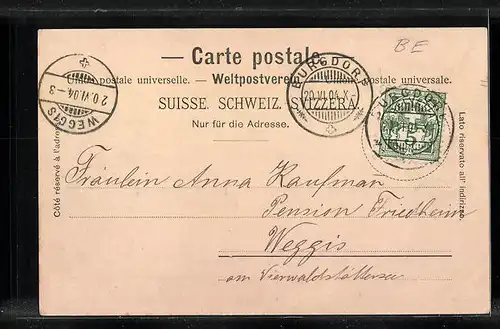 BE
Carte postale.
Union postale universelle. — Weltpostverein. — Unione postale universale.
SUISSE. SCHWEIZ. SVIZZERA.
Nur für die Adresse.
WEGGIS
20.VI.04.-3
BURGDORF
20.VI.04.X-
BURGDORF
5
Côté réservé à l'adresse.
Lato riservato all' indirizzo.
Fräulein Anna Kaufman
Pension Friedheim
Weggis
am Vierwaldstättersee